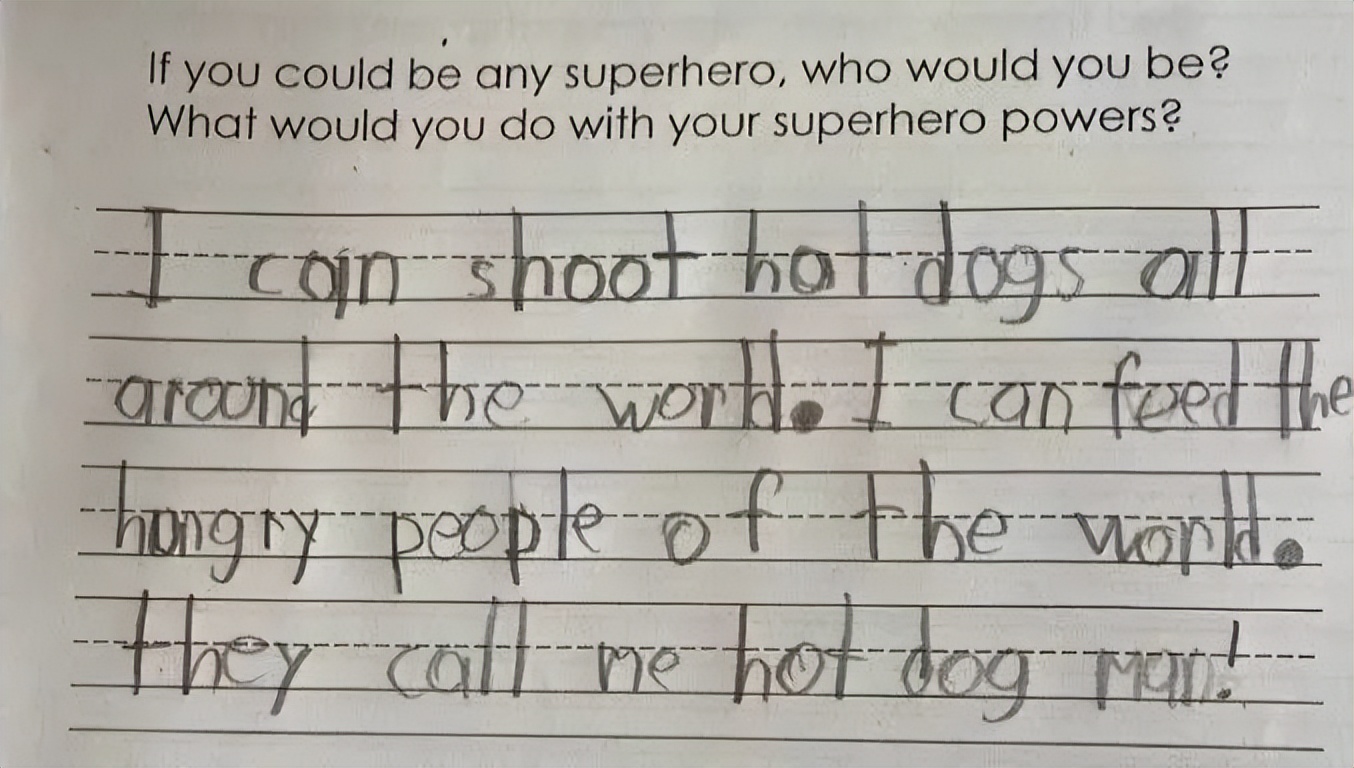 If you could be any superhero, who would you be?
What would you do with your superhero powers?
I can shoot hot dogs all
around the world. I can feed the
hongry people of the world.
they call me hot dog man!